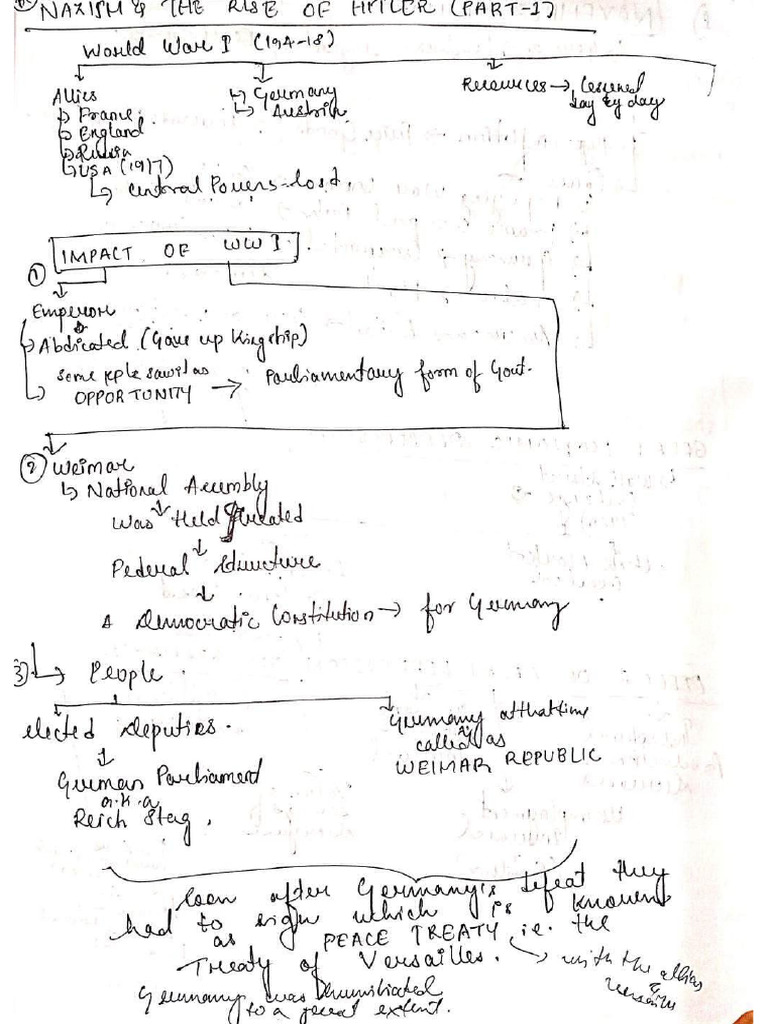 NAXISM & THE RISE OF HITLER (PART-1)
World War I (194-18)
Allies
France
England
Russia
USA (1917)
Central Powers - Lost
Germany
Austria
Resources → Lessened
day by day
IMPACT OF WW I
①
Emperor
Abdicated (Gave up Kingship)
Some pple saw it as
OPPORTUNITY → Parliamentary form of Govt.
② Weimar
National Assembly
Was Held & created
Federal structure
A Democratic Constitution → for Germany
3) → People
elected deputies.
German Parliament
a.k.a
Reich Stag.
Germany at that time
called as
WEIMAR REPUBLIC
Soon after Germany's defeat they
had to sign which is known
as PEACE TREATY i.e. the
Treaty of Versailles. → with the allies
Germany was humiliated
to a great extent.